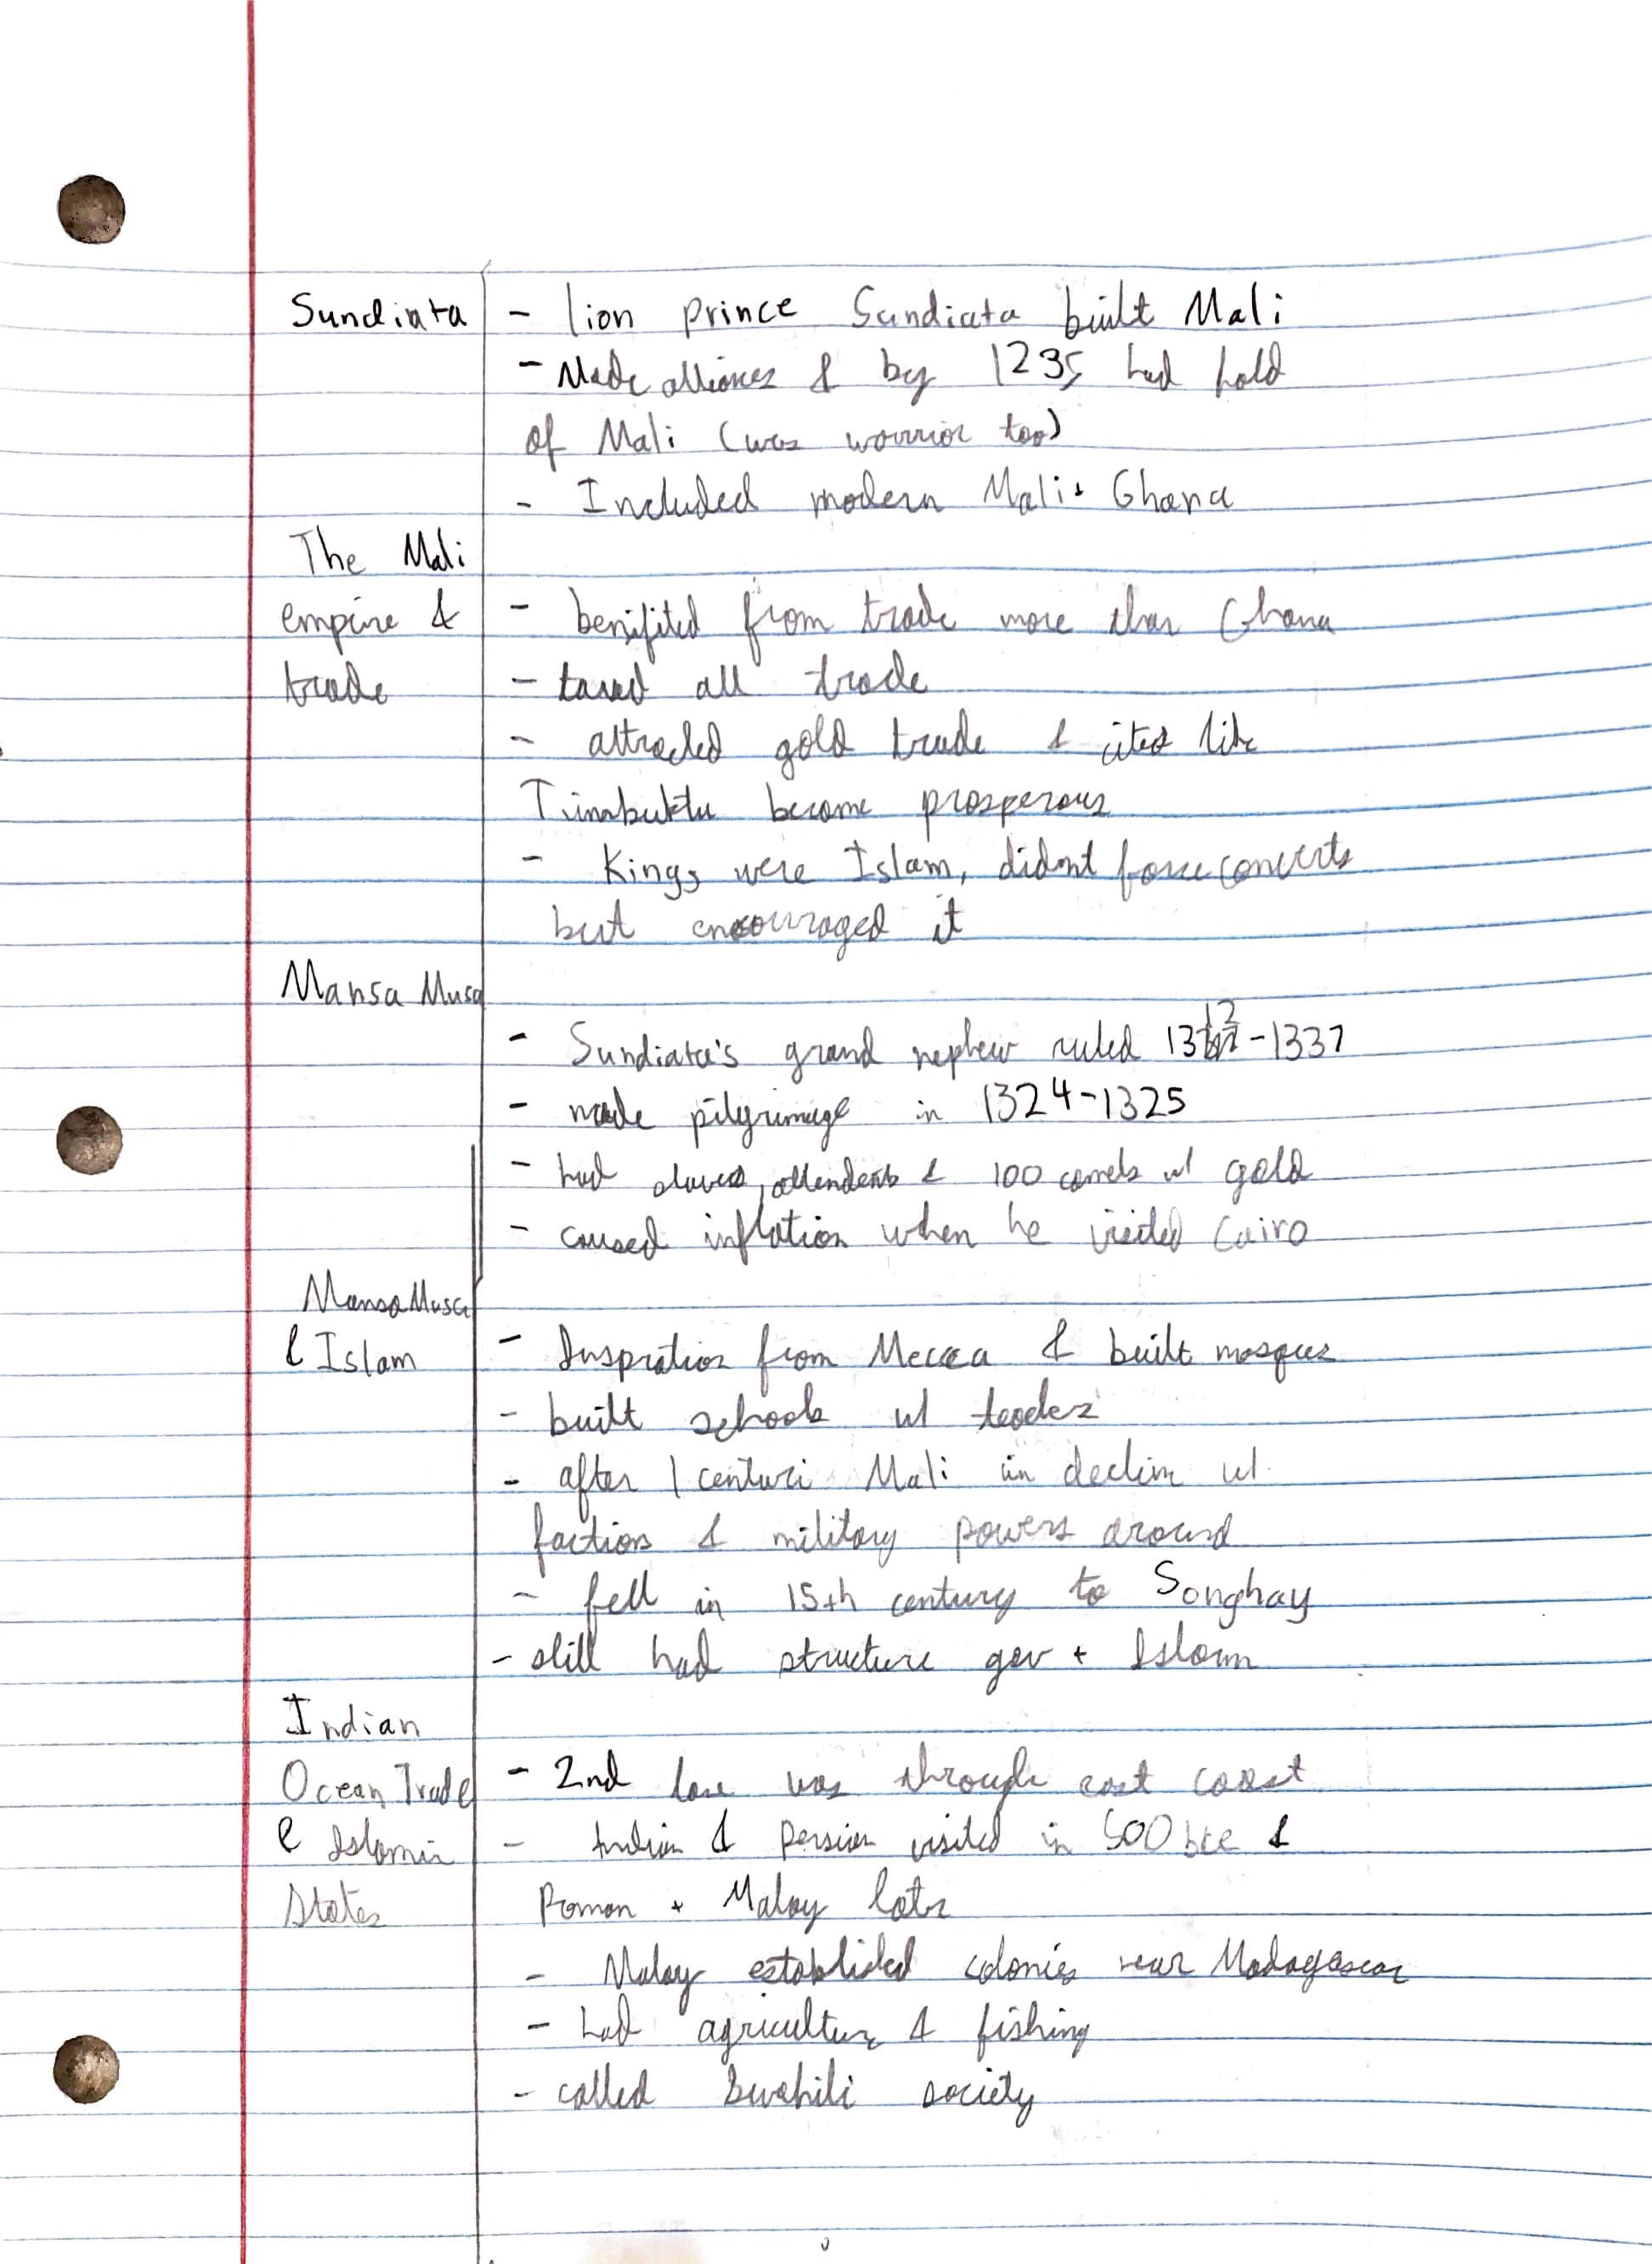 Sundiata - lion prince Sundiata built Mali
- Made alliances & by 1235 had hold
of Mali (was warrior too)
- Included modern Mali + Ghana
The Mali
empire & - benifited from trade more than Ghana
trade - taxed all trade
- attracted gold trade & cites like
Timbuktu become prosperous
- Kings were Islam, didnt force converts
but encouraged it
Mansa Musa
- Sundiata's grand nephew ruled 1312-1337
- made pilgrimage in 1324-1325
- had slaves, attendents & 100 camels w/ gold
- caused inflation when he visited Cairo
Mansa Musa
& Islam - Inspration from Mecca & built mosques
- built schools w/
- after 1 centuri Mali in decline w/
factions & military powers around
- fell in 15th century to Songhay
- still had structure gov + Islam
Indian
Ocean Trade - 2nd was through east coast
& Islamic - Indian & Persian visited in 500 bce &
States Roman + Malay later
- Malay established colonies near Madagascar
- had agriculture & fishing
- called Swahili society